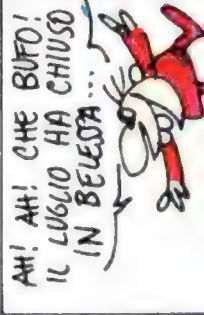 AH! AH! CHE BUFO!
IL LUGLIO HA CHIUSO
IN BELESTA...